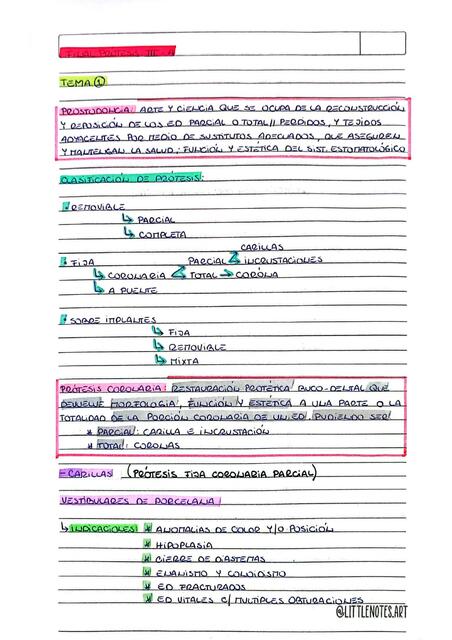 FINAL PRÓTESIS III - A
TEMA 1
PROSTODONCIA: ARTE Y CIENCIA QUE SE OCUPA DE LA RECONSTRUCCIÓN
Y REPOSICIÓN DE LOS ED PARCIAL O TOTAL// PERDIDOS, Y TEJIDOS
ADYACENTES POR MEDIO DE SUSTITUTOS ADECUADOS, QUE ASEGUREN
Y MANTENGAN LA SALUD, FUNCIÓN Y ESTÉTICA DEL SIST. ESTOMATOLÓGICO
CLASIFICACIÓN DE PRÓTESIS:
* REMOVIBLE
↳ PARCIAL
↳ COMPLETA
CARILLAS
* FIJA PARCIAL INCRUSTACIONES
↳ CORONARIA TOTAL → CORONA
↳ A PUENTE
* SOBRE IMPLANTES
↳ FIJA
↳ REMOVIBLE
↳ MIXTA
PRÓTESIS CORONARIA: RESTAURACIÓN PROTÉTICA BUCO-DENTAL QUE
DEVUELVE MORFOLOGIA, FUNCIÓN Y ESTÉTICA A UNA PARTE O LA
TOTALIDAD DE LA PORCIÓN CORONARIA DE UN ED. PUDIENDO SER:
* PARCIAL: CARILLA E INCRUSTACIÓN
* TOTAL: CORONAS
- CARILLAS (PRÓTESIS FIJA CORONARIA PARCIAL)
VESTIBULARES DE PORCELANA:
↳ INDICACIONES: * ANOMALIAS DE COLOR Y/O POSICIÓN
* HIPOPLASIA
* CIERRE DE DIASTEMAS
* ENANISMO Y CONOIDISMO
* ED FRACTURADOS
* ED VITALES C/ MULTIPLES OBTURACIONES
@LITTLENOTES.ART